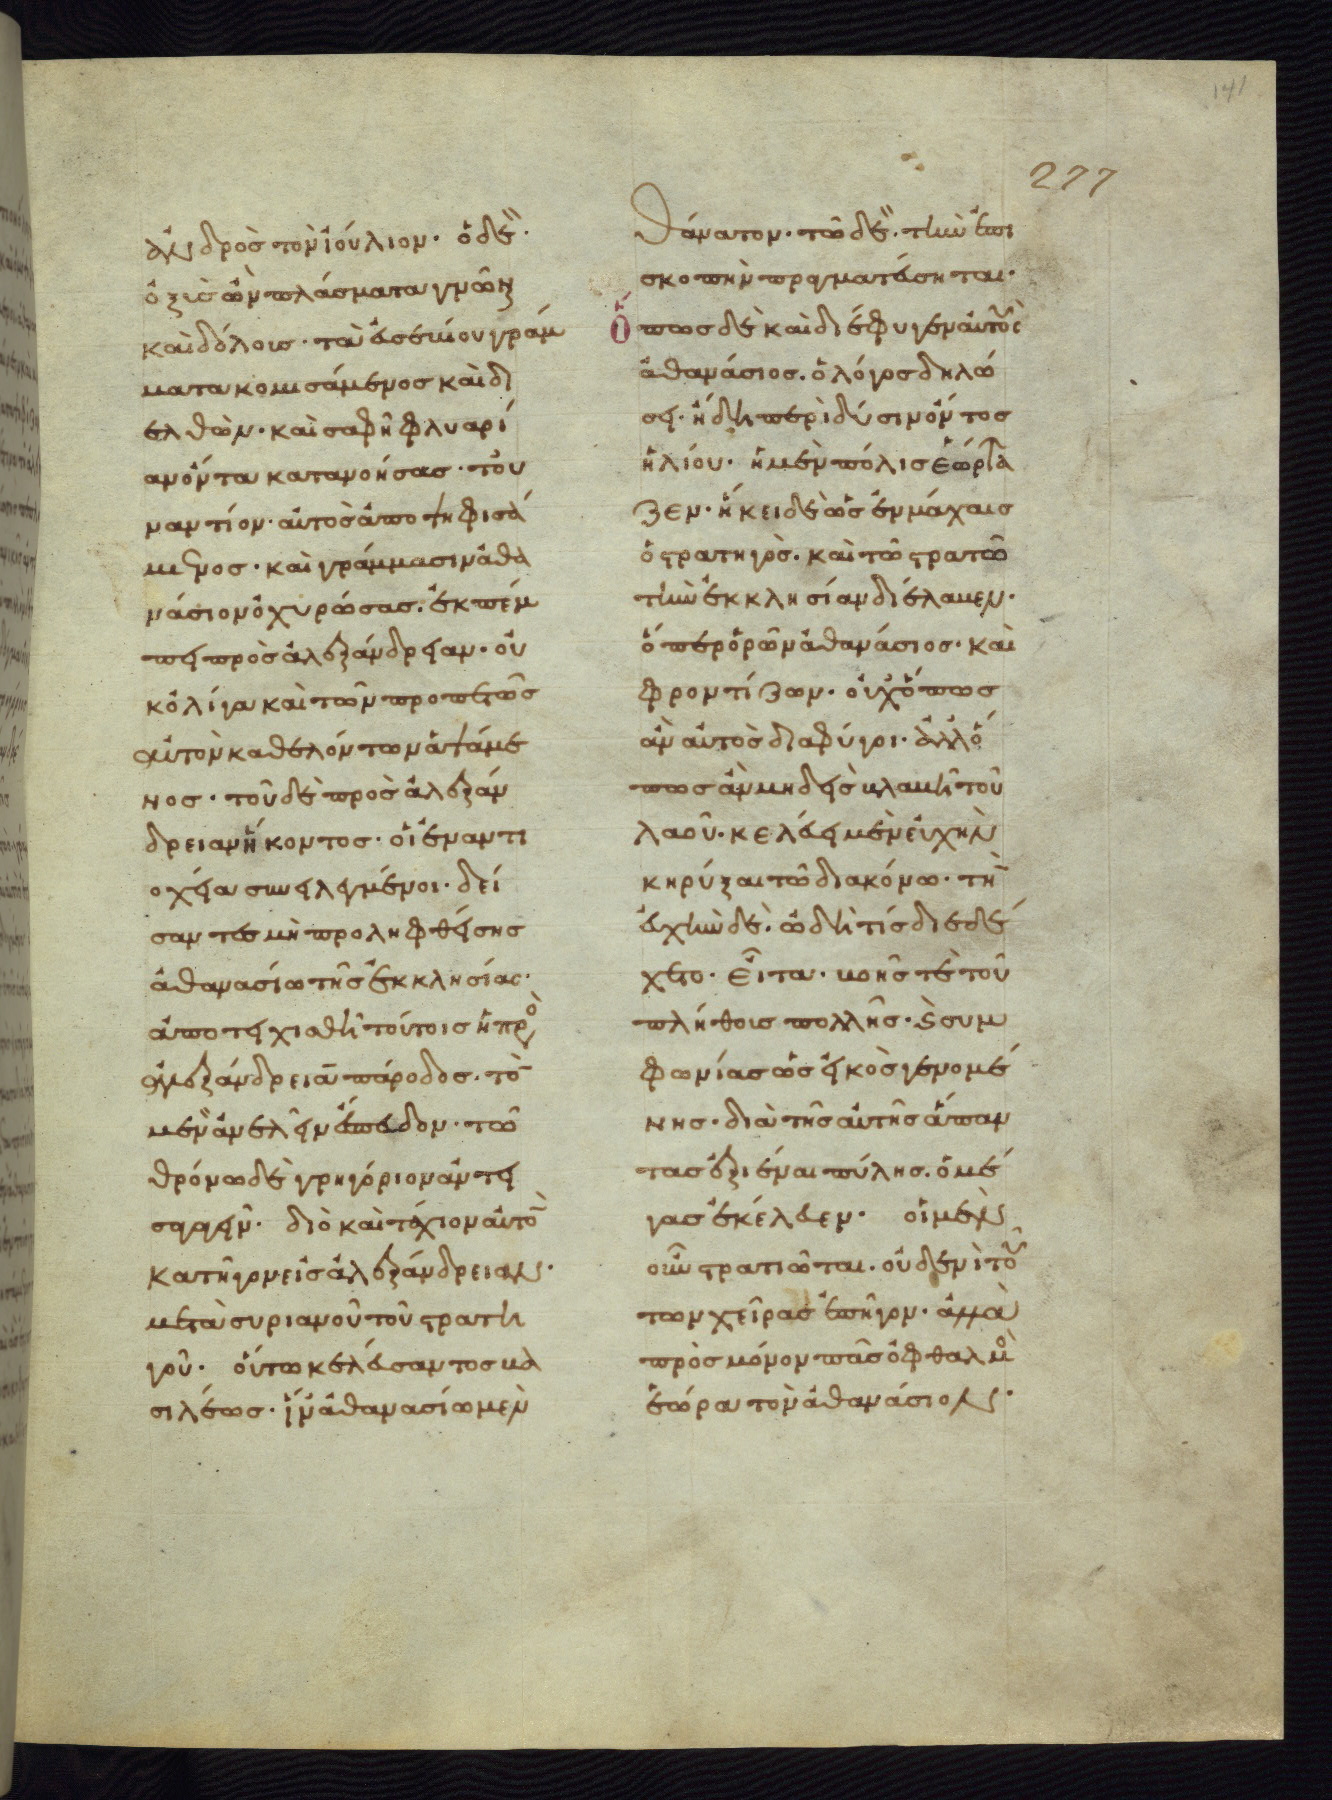 141
277
ἀνδρὸς τὸν ἰούλιον· ὁ δὲ·
ὀξὺς ὢν πλάσματα γνῶναι
καὶ δόλοις· τὰ εὐσεβίου γράμ
ματα κομισάμενος καὶ δι
ελθὼν· καὶ σαφῆ φλυαρί
αν ὄντα κατανοήσας· τοὐ
ναντίον· αὐτὸς ἀποψηφισά
μενος· καὶ γράμμασιν ἀθα
νάσιον ὀχυρώσας· ἐκπέμ
πει πρὸς ἀλεξάνδρειαν· οὐ
κ ὀλίγα καὶ τῶν προπετῶς
αὐτὸν καθελόντων ἁψάμε
νος· τοῦ δὲ πρὸς ἀλεξάν
δρειαν ἥκοντος· οἱ ἐν ἀντι
οχείᾳ συνειλεγμένοι· δεί
σαντες μὴ προληφθείσης
ἀθανασίῳ τῆς ἐκκλησίας·
ἀποτειχισθῇ τούτοις ἡ πρὸς
ἀλεξάνδρειαν πάροδος· τὸ
μὲν ἀνελεῖν ἔσπευδον· τῷ
θρόνῳ δὲ γρηγόριον ἀντει
σαγαγεῖν· διὸ καὶ τάχιον αὐτὸν
κατῆγον εἰς ἀλεξάνδρειαν·
μετὰ συριανοῦ τοῦ στρατη
γοῦ· οὕτω κελεύσαντος βα
σιλέως· ἵν' ἀθανασίῳ μὲν
θάνατον· τῷ δὲ· τὴν ἐπι
σκοπὴν πραγματεύσηται·
ὅπως δὲ καὶ διέφυγεν αὐτοὺς
ἀθανάσιος· ὁ λόγος δηλώ
σει· ἤδη περὶ δύσιν ὄντος
ἡλίου· ἡ μὲν πόλις ἑώρτα
ζεν· ἥκει δὲ ὡς ἐν μάχαις
ὁ στρατηγὸς· καὶ τῷ στρατῷ
τὴν ἐκκλησίαν διέλαβεν·
ὅπερ ὁρῶν ἀθανάσιος· καὶ
φροντίζων· οὐχ ὅπως
ἂν αὐτὸς διαφύγοι· ἀλλ' ὅ
πως ἂν μηδεὶς βλαβῇ τοῦ
λαοῦ· κελεύει μὲν εὐχὴν
κηρύξαι τῷ διακόνῳ· τὴν
εὐχὴν δὲ· ᾠδή τις διεδέ
χετο· εἶτα· βοῆς τε τοῦ
πλήθους πολλῆς· καὶ συμ
φωνίας ὡς εἰκὸς γενομέ
νης· διὰ τῆς αὐτῆς ἅπαν
τας ἐξιέναι πύλης· ὁ μέ
γας ἐκέλευεν· οἱ μὲν
οὖν στρατιῶται· οὐδενὶ τού
των χεῖρας ἐπῆγον· ἀλλὰ
πρὸς μόνον πᾶς ὀφθαλμὸς
ἑώρα τὸν ἀθανάσιον·